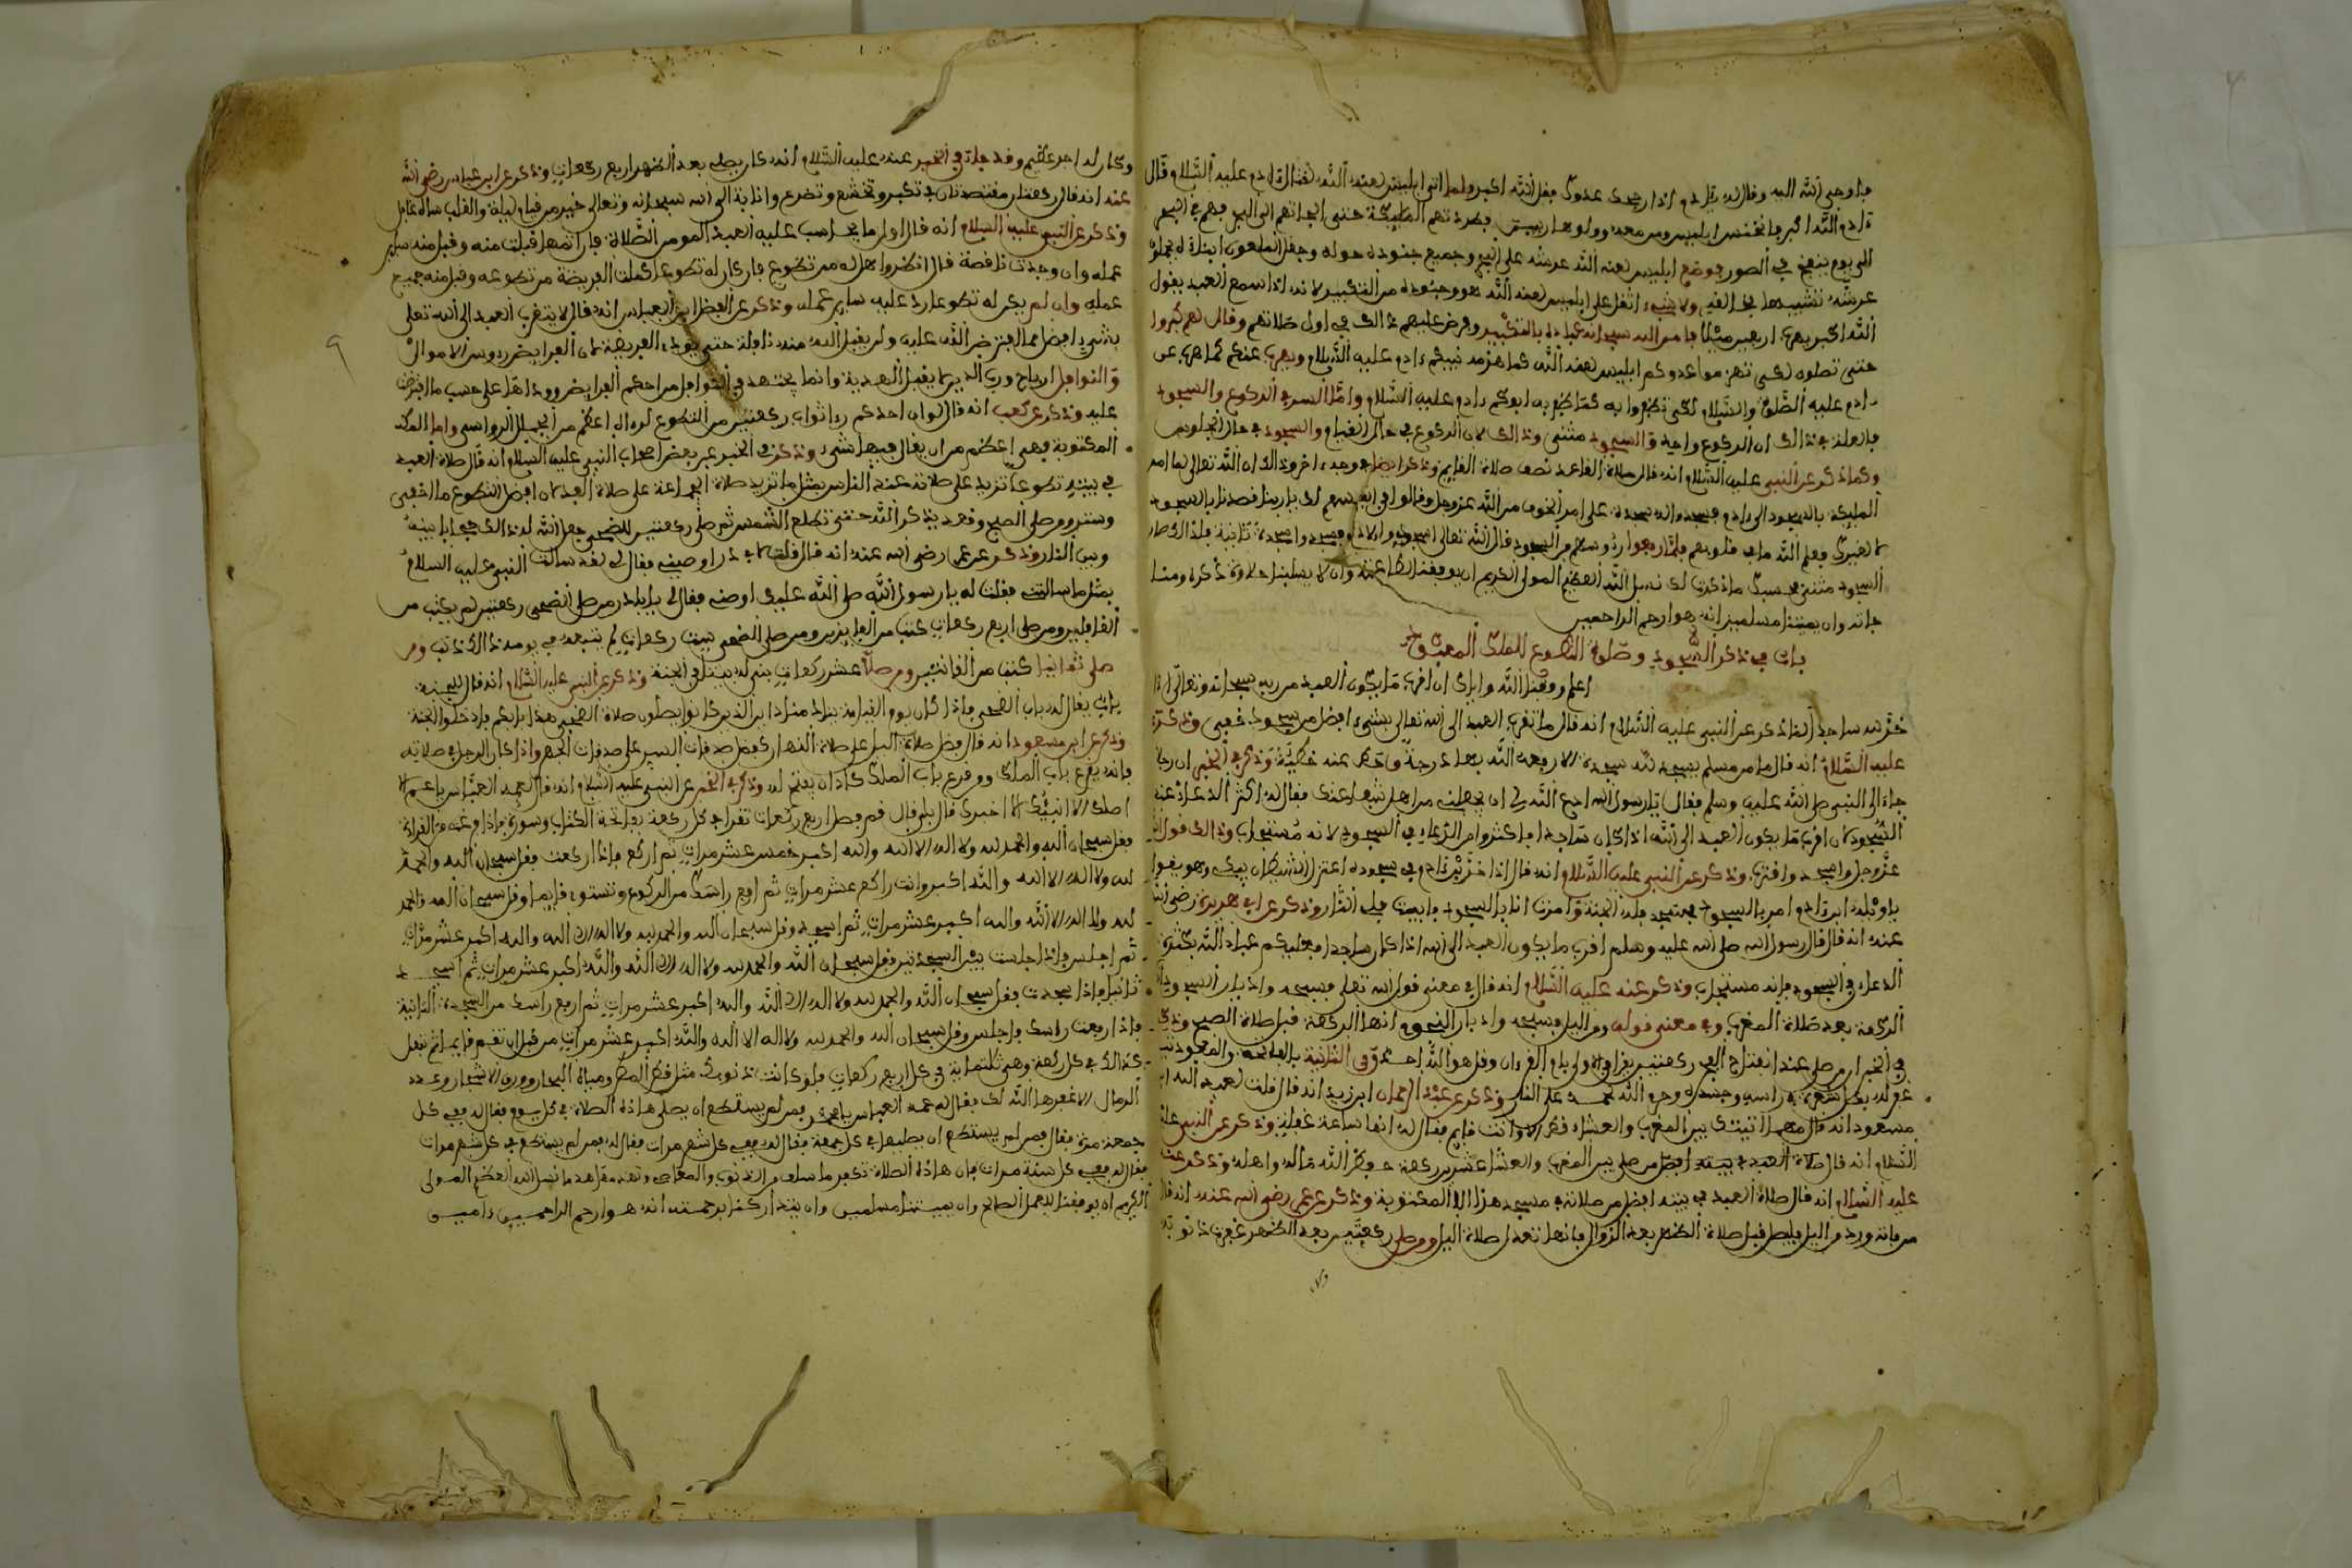 فاوحى الله اليه وقال له يادم اذا رجمك عدوك فقل الله اكبر ولما اتى ابليس لعنه الله لقتال ادم عليه السلام قال
ءادم الله اكبر فانخنس ابليس ومن معه وولوا هاربين فطردتهم الملايكة حتى الجاتهم الى البحر فهم في البحر
الى يوم ينفخ في الصور فوضع ابليس لعنه الله عرشه على البحر وجميع جنوده حوله
عرشه ولا شيء اثقل على ابليس لعنه الله هو وجنوده من التكبير لانه اذا سمع العبد يقول
الله اكبر يهرب اربعين ميلا فامر الله سبحانه عباده بالتكبير وفرض عليهم ذالك في اول صلاتهم وقال لهم كبروا
حتى عدوكم ابليس لعنه الله كما هزمه نبيكم ءادم عليه السلام ويهرب عنكم كما هرب عن
ءادم عليه الصلاة والسلام لكي تظفروا به كما ظفر به ابوكم ءادم عليه السلام واما السر في الركوع والسجود
فالعلة في ذالك ان الركوع واحد والسجود مثنى وذالك لان الركوع في حال القيام والسجود في حال الجلوس
وكما ذكر عن النبي عليه السلام انه قال صلاة القاعد نصف صلاة القايم وذكر ايضا وجه ءاخر وذالك ان الله تعالى لما امر
الملايكة بالسجود الى ءادم فسجدوا له سجدة على امر الخوف من الله عز وجل وقالوا
لا لغيرك فعلم الله ما في قلوبهم فلما رفعوا رءوسهم من السجود قال الله تعالى اسجدوا لادم فسجدوا سجدة ثانية فلذالك صار
السجود مثنى فحسبك ما ذكرت لك نسل الله العظيم المولى الكريم ان يوفقنا لطاعته وان لا يسلبنا حلاوة ذكره
وان يميتنا مسلمين انه هو ارحم الراحمين
باب في ذكر السجود وصلوة التطوع للملك المعبود
اعلم وفقنا الله واياك ان اقرب ما يكون العبد من ربه سبحانه وتعالى اذا
خر له ساجدا لما ذكر عن النبي عليه السلام انه قال ما تقرب العبد الى الله تعالى بشيء افضل من سجود خفي وذكر عنه
عليه السلام انه قال ما من مسلم يسجد لله سجدة الا رفعه الله بها درجة وحط عنه خطيئة وذكر في الخبر ان رجلا
جاء الى النبي صلى الله عليه وسلم فقال يارسول الله ادع الله لي ان يجعلني من اهل شفاعتك فقال له اكثر الدعاء عند
السجود لان اقرب ما يكون العبد الى الله اذا كان ساجدا فاكثروا من الدعاء في السجود لانه مستجاب وذالك قوله
عز وجل واسجد واقترب وذكر عن النبي عليه السلام انه قال اذا خر ابن ءادم في سجوده اعتزل الشيطان يبكي وهو يقول
ياويله ابن ءادم امر بالسجود فسجد فله الجنة وامرت انا بالسجود فابيت فلي النار وذكر عن ابي هريرة رضي الله
عنه انه قال قال رسول الله صلى الله عليه وسلم اقرب ما يكون العبد الى الله اذا كان ساجدا فعليكم عباد الله بكثرة
الدعاء في السجود فانه مستجاب وذكر عنه عليه السلام انه قال في معنى قول الله تعلى فسبحه وادبار السجود انها
الركعة بعد صلاة المغرب وفي معنى قوله ومن الليل فسبحه وادبار النجوم انها الركعة قبل صلاة الصبح وذكر
في الخبر ان من صلى عند انفتاح الفجر ركعتين بام القرءان وقل هو الله احد وفي الثانية بالفاتحة والمعوذتين
غفر له بكل شعرة في راسه وجسده وحرم الله جسده على النار وذكر عن عبد الرحمان ابن زيد انه قال قلت لعبد الله ابن
مسعود انه قال بين المغرب والعشاء قط الا وانت قايم فقال له انها ساعة غفلة وذكر عن النبي عليه
السلام انه قال من صلى بين المغرب والعشاء عشرين ركعة حفظ الله ماله واهله وذكر عنه
عليه السلام انه قال صلاة العبد في بيته افضل من صلاته في مسجد هذا الا المكتوبة وذكر عن عمر رضي الله عنه انه قال
من فاته ورده من اليل فليصل قبل صلاة الظهر بعد الزوال فانها تعدل صلاة اليل ومن صلى ركعتين بعد الظهر غفرت ذنوبه
وكان له اجر عظيم وقد جاء في الخبر عنه عليه السلام انه كان يصلي بعد الظهر اربع ركعات وذكر عن ابن عباس رضي الله
عنه انه قال ركعتان مقتصدتان في تفكر وتخشع وتضرع وانابة الى الله سبحانه وتعالى خير من قيام ليلة والقلب ساه غافل
وذكر عن النبي عليه السلام انه قال اول ما يحاسب عليه العبد المومن الصلاة فان اتمها قبلت منه وقبل منه ساير
عمله وان وجدت ناقصة قال انظروا هل له من تطوع فان كان له تطوعا كملت الفريضة من تطوعه وقبل منه جميع
عمله وان لم يكن له تطوعا رد عليه ساير عمله وذكر عن الفضل ابن العباس انه قال لا يتقرب العبد الى الله تعلى
بشيء افضل مما افترض الله عليه ولن يقبل الله منه نافلة حتى يودي الفريضة لان الفرايض رءوس الاموال
والنوافل ارباح وانما يجتهد في النوافل من احكم الفرايض واداها على حسب ما افترض
عليه وذكر عن كعب انه قال لو ان احدكم رءا ثواب ركعتين من التطوع لرءاه اعظم من الجبال الرواسي واما
المكتوبة فهي اعظم من ان يقال فيها شيء وذكر في الخبر عن بعض اصحاب النبي عليه السلام انه قال صلاة العبد
في بيته تطوعا تزيد على صلاته عند الناس مثل ما تزيد صلاة الجماعة على صلاة الفذ لان افضل التطوع ما اخفي
وستر ومن صلى الصبح وقعد يذكر الله حتى تطلع الشمس ثم صلى ركعتين للضحى جعل الله له ذالك حجابا بينه
وبين النار وذكر عن عمر رضي الله عنه انه قال قلت لابي ذر اوصيني فقال لي لقد سالت النبي عليه السلام
بمثل ما سالتني فقلت له يارسول الله صلى الله عليك اوصني فقال لي يابا ذر من صلى الضحى ركعتين لم يكتب من
الغافلين ومن صلى اربع ركعات كتب من الفايزين ومن صلى الضحى ست ركعات لم يتبعه في يومه ذالك ذنب ومن
صلى ثمانيا كتب من القانتين ومن صلا عشر ركعات بني له بيتا في الجنة وذكر عن النبي عليه السلام انه قال للجنة
باب يقال له باب الضحى فاذا كان يوم القيامة ينادي مناد اين الذين كانوا يصلون صلاة الضحى هذا بابكم فادخلوا الجنة
وذكر عن ابن مسعود انه قال فضل صلاة اليل على صلاة النهار كفضل صدقات السر على صدقات الجهر واذا كان الرجل في صلاته
فانه يقرع باب الملك ومن قرع باب الملك كاد ان يفتح له وذكر في الخبر عن النبي عليه السلام انه قال لعمه العباس ياعم الا
اصلك الا اخبرك قال بلى قال قم فصل اربع ركعات تقرا في كل ركعة بفاتحة الكتاب وسورة فاذا فرغت من القراءة
فقل سبحان الله والحمد لله ولا اله الا الله والله اكبر خمس عشر مرات ثم اركع فاذا ركعت فقل سبحان الله والحمد
لله ولا اله الا الله والله اكبر وانت راكع عشر مرات ثم ارفع راسك من الركوع وتستوي قايما وقل سبحان الله والحمد
لله ولا اله الا الله والله اكبر عشر مرات ثم اسجد وقل سبحان الله والحمد لله ولا اله الا الله والله اكبر عشر مرات
ثم اجلس فاذا جلست بين السجدتين فقل سبحان الله والحمد لله ولا اله الا الله والله اكبر عشر مرات ثم اسجد
ثانيا فاذا سجدت فقل سبحان الله والحمد لله ولا اله الا الله والله اكبر عشر مرات ثم ارفع راسك من السجدة الثانية
فاذا رفعت راسك فاجلس وقل سبحان الله والحمد لله ولا اله الا الله والله اكبر عشر مرات من قبل ان تقوم قايما ثم تفعل
كذالك في كل ركعة وهي ثلثماية في كل اربع ركعات فلو كانت ذنوبك مثل قطر المطر ومياه البحار وورق الاشجار وعدد
الرمال لا غفرها الله لك فقال له عمه العباس فمن لم يستطع ان يصلي هاذه الصلاة في كل يوم فقال له ففي كل
جمعة مرة فقال فمن لم يستطع ان يصليها في كل جمعة فقال له ففي كل شهر مرات فقال له فمن لم يستطع في كل شهر مرات
فقال له ففي كل سنة مرات فان هاذه الصلاة تكفر ما سلف من الذنوب والمعاصي نسل الله العظيم المولى
الكريم ان يوفقنا للعمل الصالح وان يميتنا مسلمين وان يتداركنا برحمته انه هو ارحم الراحمين ءامين